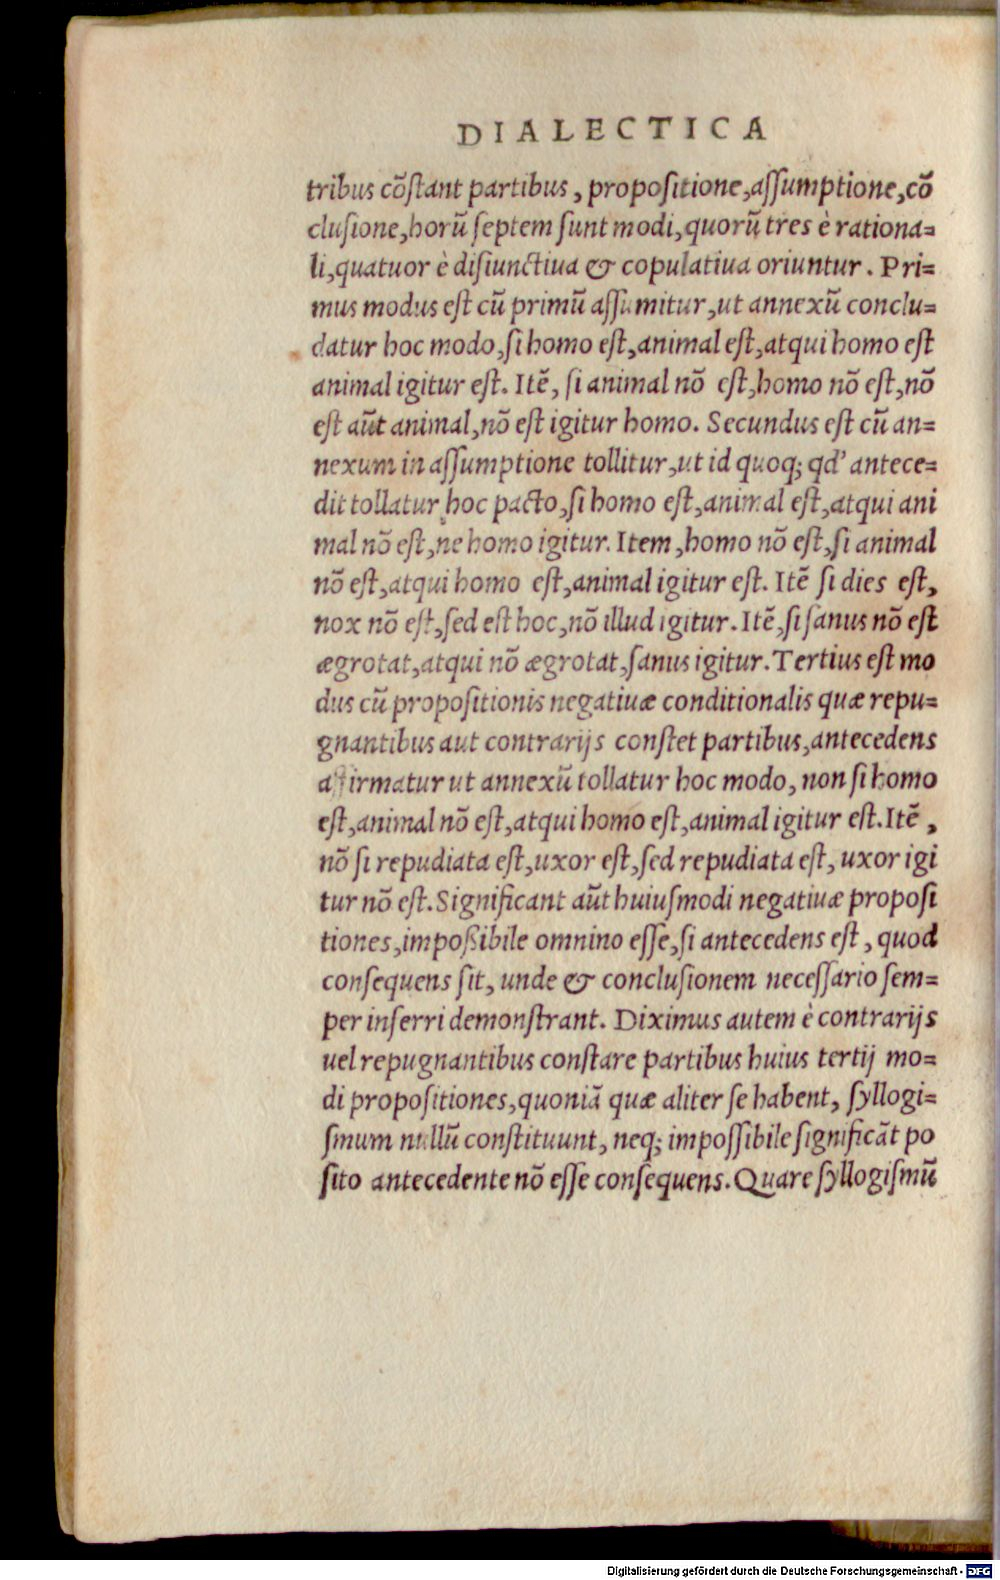 DIALECTICA
tribus cõſtant partibus, propoſitione,aſſumptione,cõ
cluſione,horũ ſeptem ſunt modi,quorũ tres è rationa=
li,quatuor è diſiunctiua & copulatiua oriuntur. Pri=
mus modus eſt cũ primũ aſſumitur,ut annexũ conclu=
datur hoc modo,ſi homo eſt,animal eſt,atqui homo eſt
animal igitur eſt. Itẽ, ſi animal nõ eſt,homo nõ eſt,nõ
eſt aũt animal,nõ eſt igitur homo. Secundus eſt cũ an=
nexum in aſſumptione tollitur,ut id quoq; qd' antece=
dit tollatur hoc pacto,ſi homo eſt,animal eſt,atqui ani
mal nõ eſt,ne homo igitur. Item,homo nõ eſt,ſi animal
nõ eſt,atqui homo eſt,animal igitur eſt. Itẽ ſi dies eſt,
nox nõ eſt,ſed eſt hoc,nõ illud igitur. Itẽ,ſi ſanus nõ eſt
ægrotat,atqui nõ ægrotat,ſanus igitur. Tertius eſt mo
dus cũ propoſitionis negatiuæ conditionalis quæ repu=
gnantibus aut contrarijs conſtet partibus,antecedens
affirmatur ut annexũ tollatur hoc modo, non ſi homo
eſt,animal nõ eſt,atqui homo eſt,animal igitur eſt.Itẽ,
nõ ſi repudiata eſt,uxor eſt,ſed repudiata eſt, uxor igi
tur nõ eſt. Significant aũt huiuſmodi negatiuæ propoſi
tiones,impoßibile omnino eſſe,ſi antecedens eſt, quod
conſequens ſit, unde & concluſionem neceſſario ſem=
per inferri demonſtrant. Diximus autem è contrarijs
uel repugnantibus conſtare partibus huius tertij mo=
di propoſitiones,quoniã quæ aliter ſe habent, ſyllogi=
ſmum nullũ conſtituunt, neq; impoſſibile ſignificãt po
ſito antecedente nõ eſſe conſequens. Quare ſyllogiſmũ
Digitalisierung gefördert durch die Deutsche Forschungsgemeinschaft - DFG